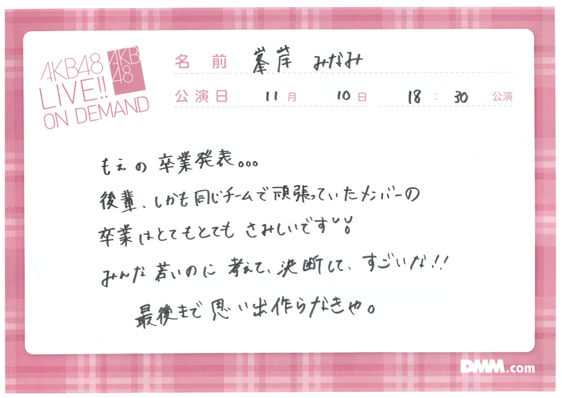 AKB48
LIVE!!
ON DEMAND
AKB
48
名前 峯岸 みなみ
公演日 11月 10日 18:30 公演
もえの卒業発表。。。
後輩、しかも同じチームで頑張っていたメンバーの
卒業はとてもとても さみしいです
みんな若いのに 考えて、決断して、すごいな!!
最後まで思い出作らなきゃ。
DMM.com